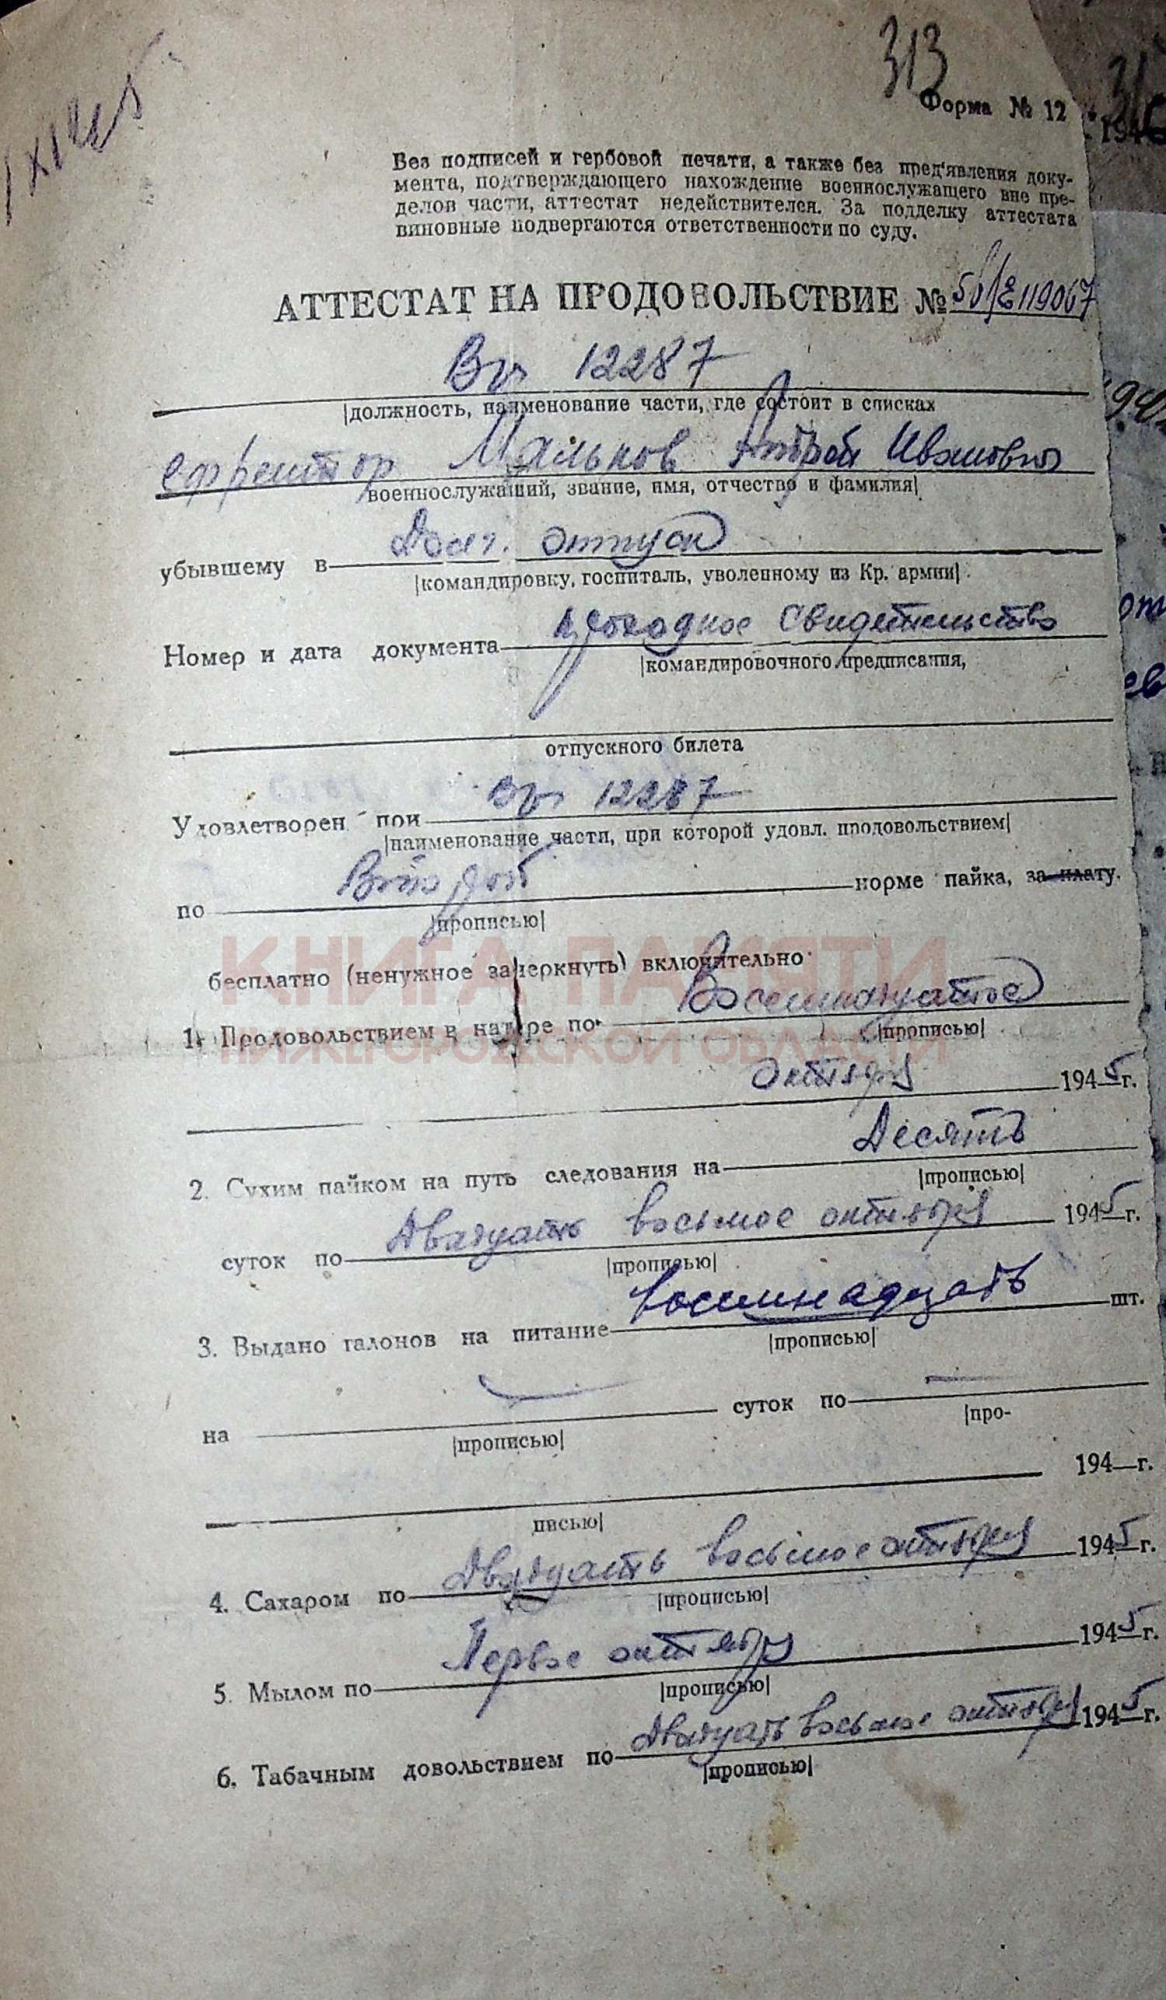 313
Форма № 12
Без подписей и гербовой печати, а также без пред'явления доку-
мента, подтверждающего нахождение военнослужащего вне пре-
делов части, аттестат недействителен. За подделку аттестата
виновные подвергаются ответственности по суду.
АТТЕСТАТ НА ПРОДОВОЛЬСТВИЕ №
119067
12287
|должность, наименование части, где состоит в списках
ефрейтор Мальков Андрей Иванович
военнослужащий, звание, имя, отчество и фамилия|
убывшему в отпуск
|командировку, госпиталь, уволенному из Кр. армии|
Номер и дата документа проходное свидетельство
|командировочного предписания,
отпускного билета
Удовлетворен при 12287
|наименование части, при которой удовл. продовольствием|
по норме пайка, за плату.
|прописью|
КНИГА ПАМЯТИ
бесплатно (ненужное зачеркнуть) включительно
1. Продовольствием в натуре по Восемнадцатое
|прописью|
НИЖЕГОРОДСКОЙ ОБЛАСТИ
октября 1945 г.
2. Сухим пайком на путь следования на Десять
|прописью|
суток по Двадцать восьмое октября 1945 г.
|прописью|
3. Выдано талонов на питание восемнадцать шт.
|прописью|
на суток по
|прописью| |про-
194 г.
писью|
4. Сахаром по Двадцать восьмое октября 1945 г.
|прописью|
5. Мылом по Первое октября 1945 г.
|прописью|
6. Табачным довольствием по Двадцать восьмое октября 1945 г.
|прописью|